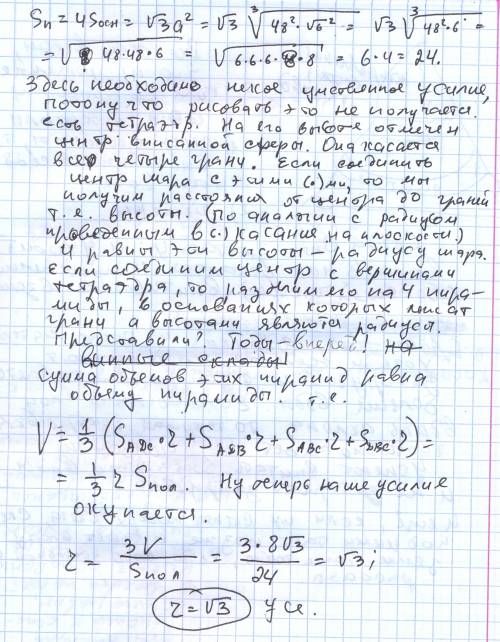 Sп = 4Sосн = √3 a² = √3 ∛(48²·√6²) = √3 ∛(48²·6) =
= √(48·48·6) = √(6·6·6·8·8) = 6·4 = 24.
Здесь необходимо некое умственное усилие,
потому что рисовать это не получается.
есть тетраэдр. На его высоте отмечен
центр вписанной сферы. Она касается
всех четыре грани. Если соединить
центр шара с этими (·)ми, то мы
получим расстояния от центра до граней
т.е. высоты. (По аналогии с радиусом
проведенным в (·) касания на плоскости.)
И равны эти высоты – радиусу шара.
Если соединим центр с вершинами
тетраэдра, то разделим его на 4 пира-
миды, в основаниях которых лежат
грани а высотами являются радиусы.
Представили? Тоды – вперёд! на
винные склады!
Сумма объемов этих пирамид равна
объему пирамиды. т.е.
V = 1/3 (S_ADC·r + S_ADB·r + S_ABC·r + S_DBC·r) =
= 1/3 r Sпол. Ну теперь наше усилие
окупается.
r = 3V/Sпол = 3·8√3/24 = √3;
r = √3 Усе.